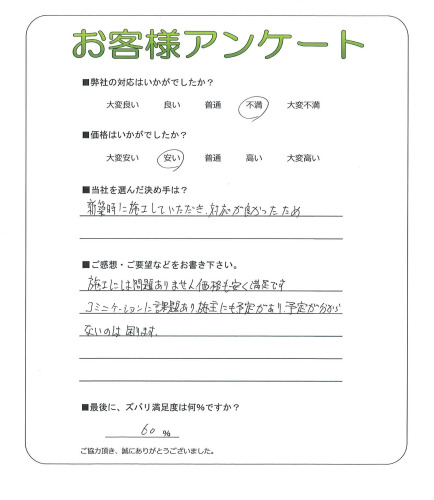 お客様アンケート
■弊社の対応はいかがでしたか？
大変良い 良い 普通 不満 大変不満
■価格はいかがでしたか？
大変安い 安い 普通 高い 大変高い
■当社を選んだ決め手は？
新築時に施工していただき、対応が良かったため
■ご感想・ご要望などをお書き下さい。
施工には問題ありません価格も安く満足です
コミニケーションに課題あり、施主にも予定があり、予定が分から
ないのは困ります。
■最後に、ズバリ満足度は何%ですか？
60 %
ご協力頂き、誠にありがとうございました。